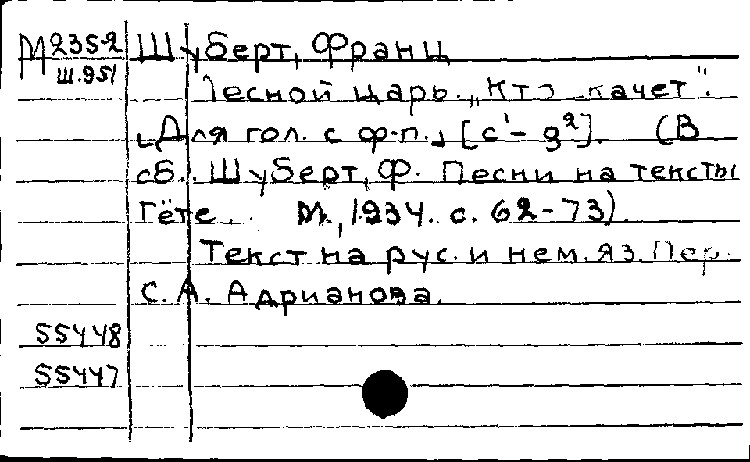 М235-2 Шуберт, Франц
Ш.951 Лесной царь. „Кто скачет".
[Для гол. с ф-п.] [c¹-g²]. (В
сб. Шуберт, Ф. Песни на тексты
Гёте. М., 1934. с. 62-73).
Текст на рус. и нем. яз. Пер.
С. А. Адрианова.
55448
55447